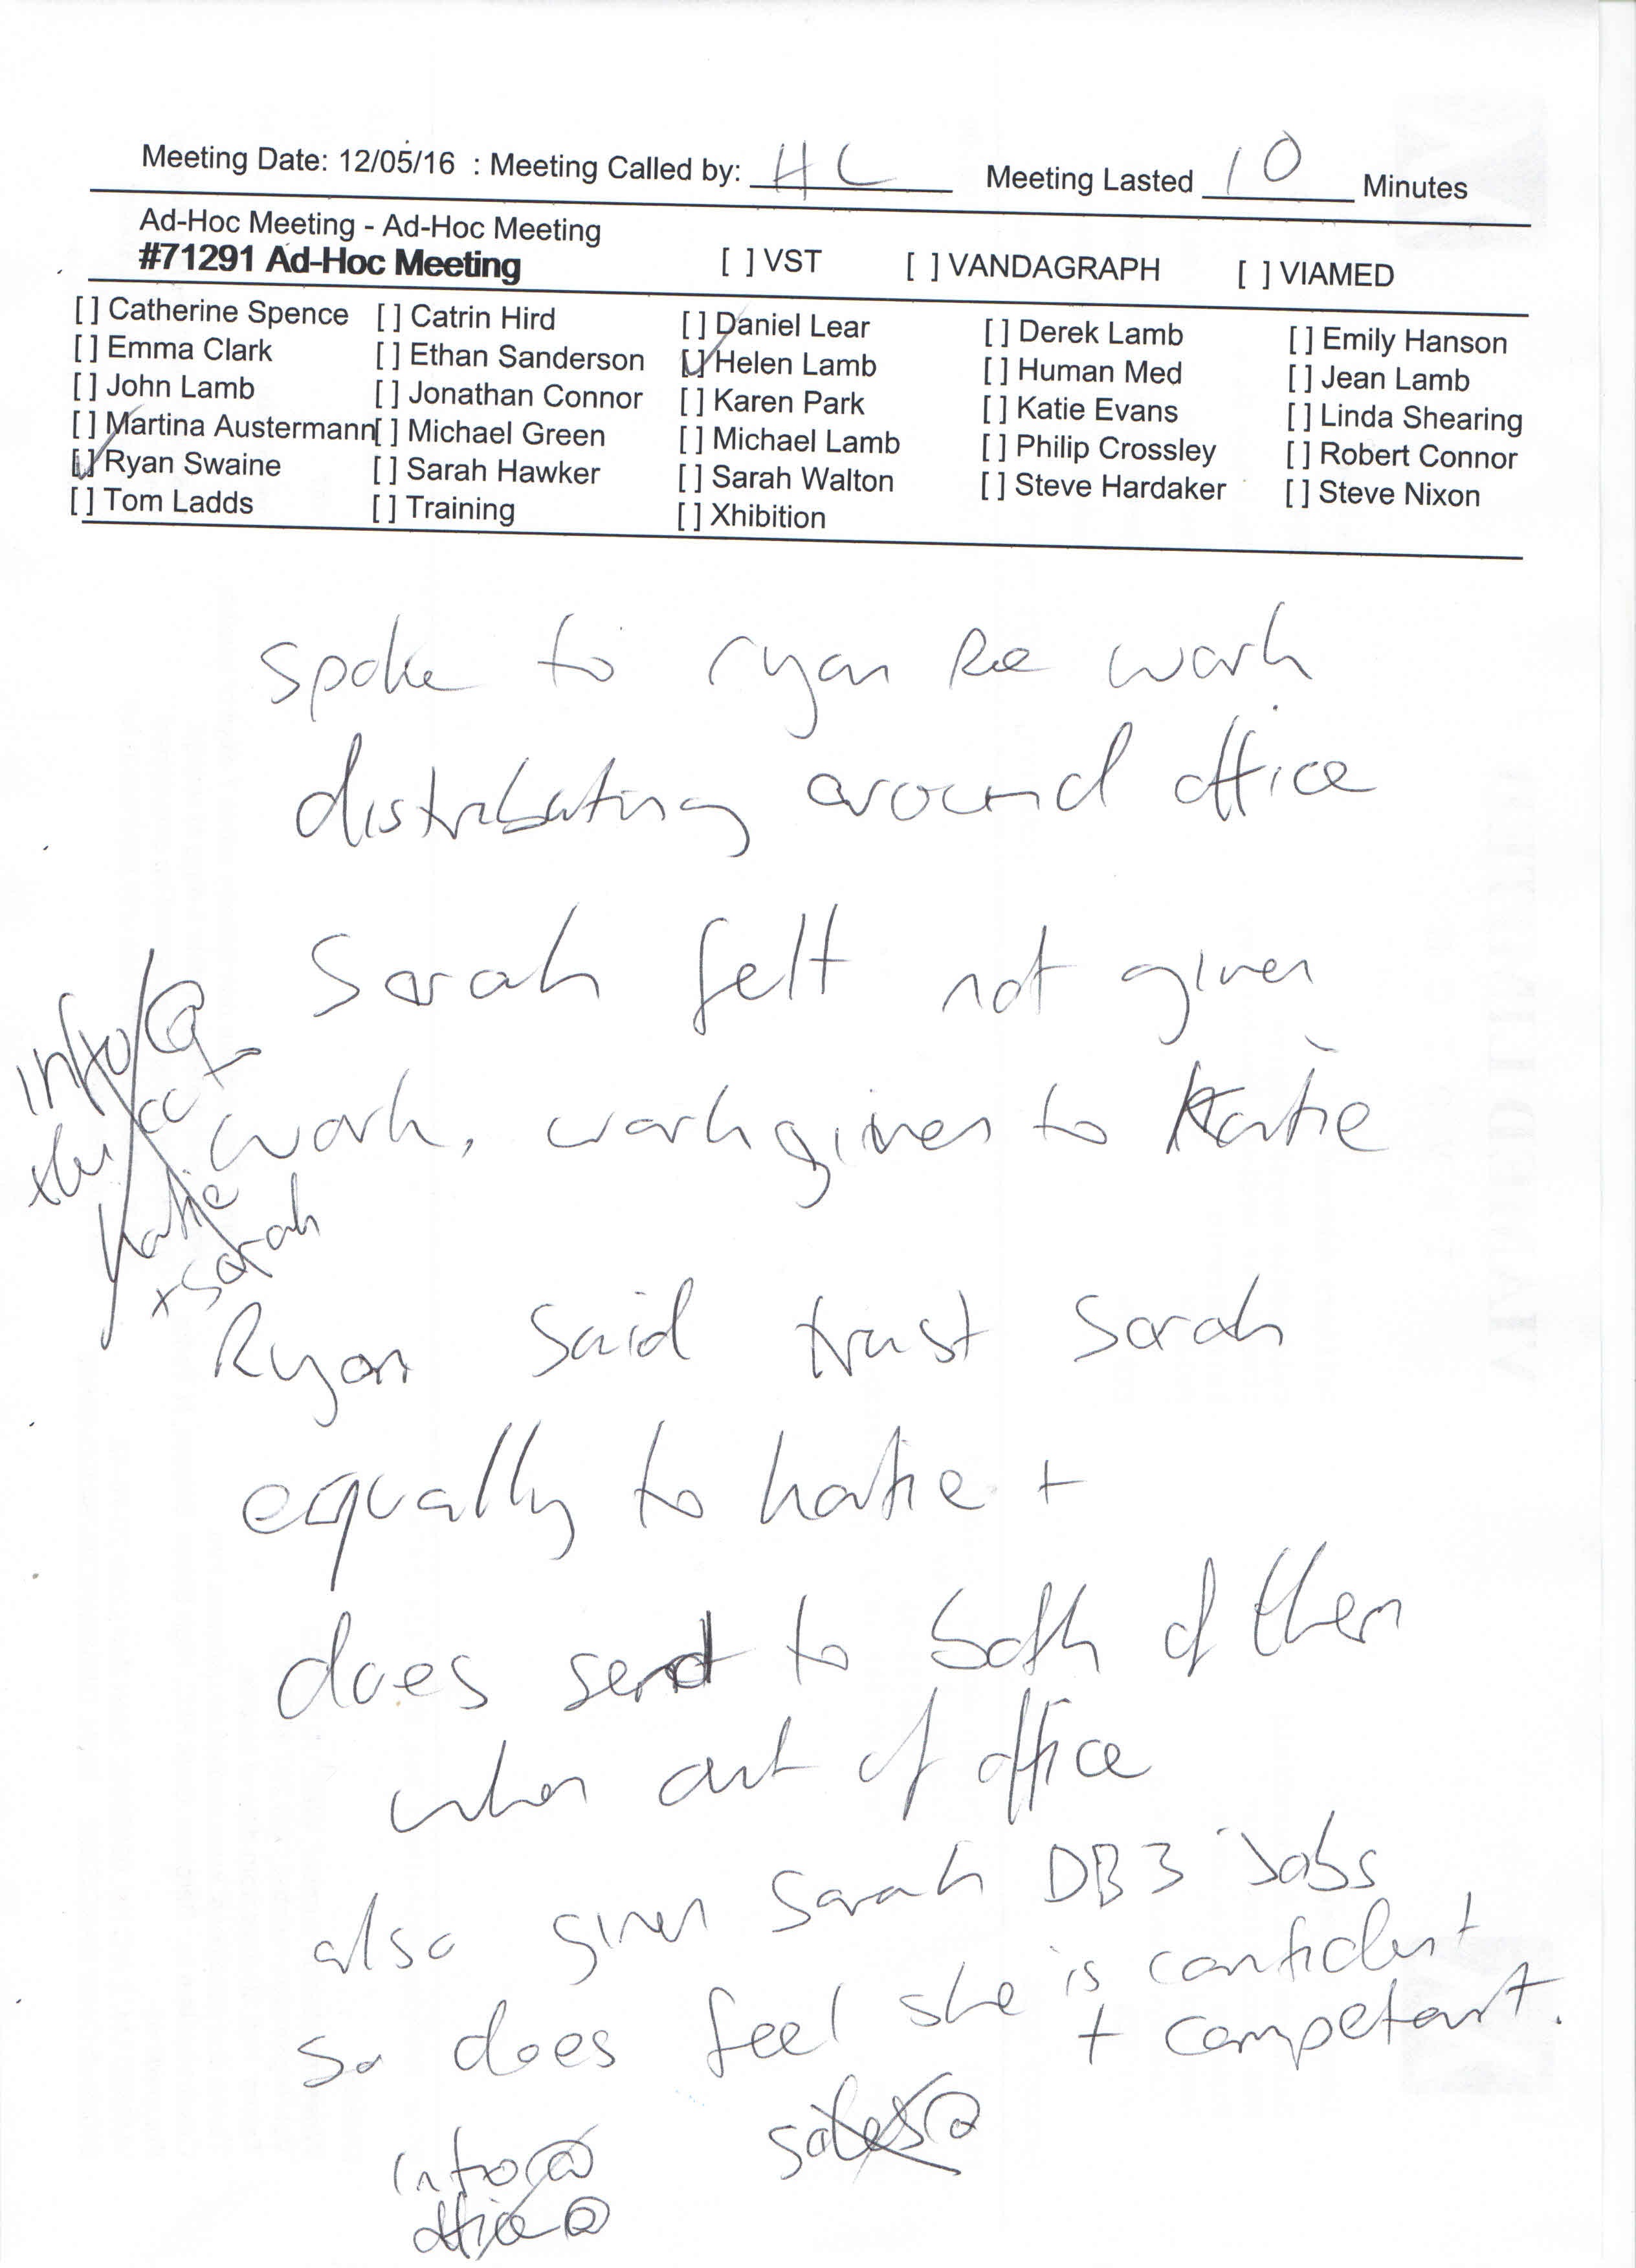 Meeting Date: 12/05/16 : Meeting Called by: HL Meeting Lasted 10 Minutes
Ad-Hoc Meeting - Ad-Hoc Meeting
#71291 Ad-Hoc Meeting [ ] VST [ ] VANDAGRAPH [ ] VIAMED
[ ] Catherine Spence [ ] Catrin Hird [ ] Daniel Lear [ ] Derek Lamb [ ] Emily Hanson
[ ] Emma Clark [ ] Ethan Sanderson [✓] Helen Lamb [ ] Human Med [ ] Jean Lamb
[ ] John Lamb [ ] Jonathan Connor [ ] Karen Park [ ] Katie Evans [ ] Linda Shearing
[ ] Martina Austermann [ ] Michael Green [ ] Michael Lamb [ ] Philip Crossley [ ] Robert Connor
[✓] Ryan Swaine [ ] Sarah Hawker [ ] Sarah Walton [ ] Steve Hardaker [ ] Steve Nixon
[ ] Tom Ladds [ ] Training [ ] Xhibition
spoke to ryan Re work
distributing around office
Sarah felt not given
work, work given to Katie
info@
cc
katie
+ Sarah
Ryan said trust Sarah
equally to katie +
does send to both of them
when out of office
also given Sarah DB3 Jobs
so does feel she is confident
+ competant.
info@ sales@
office@